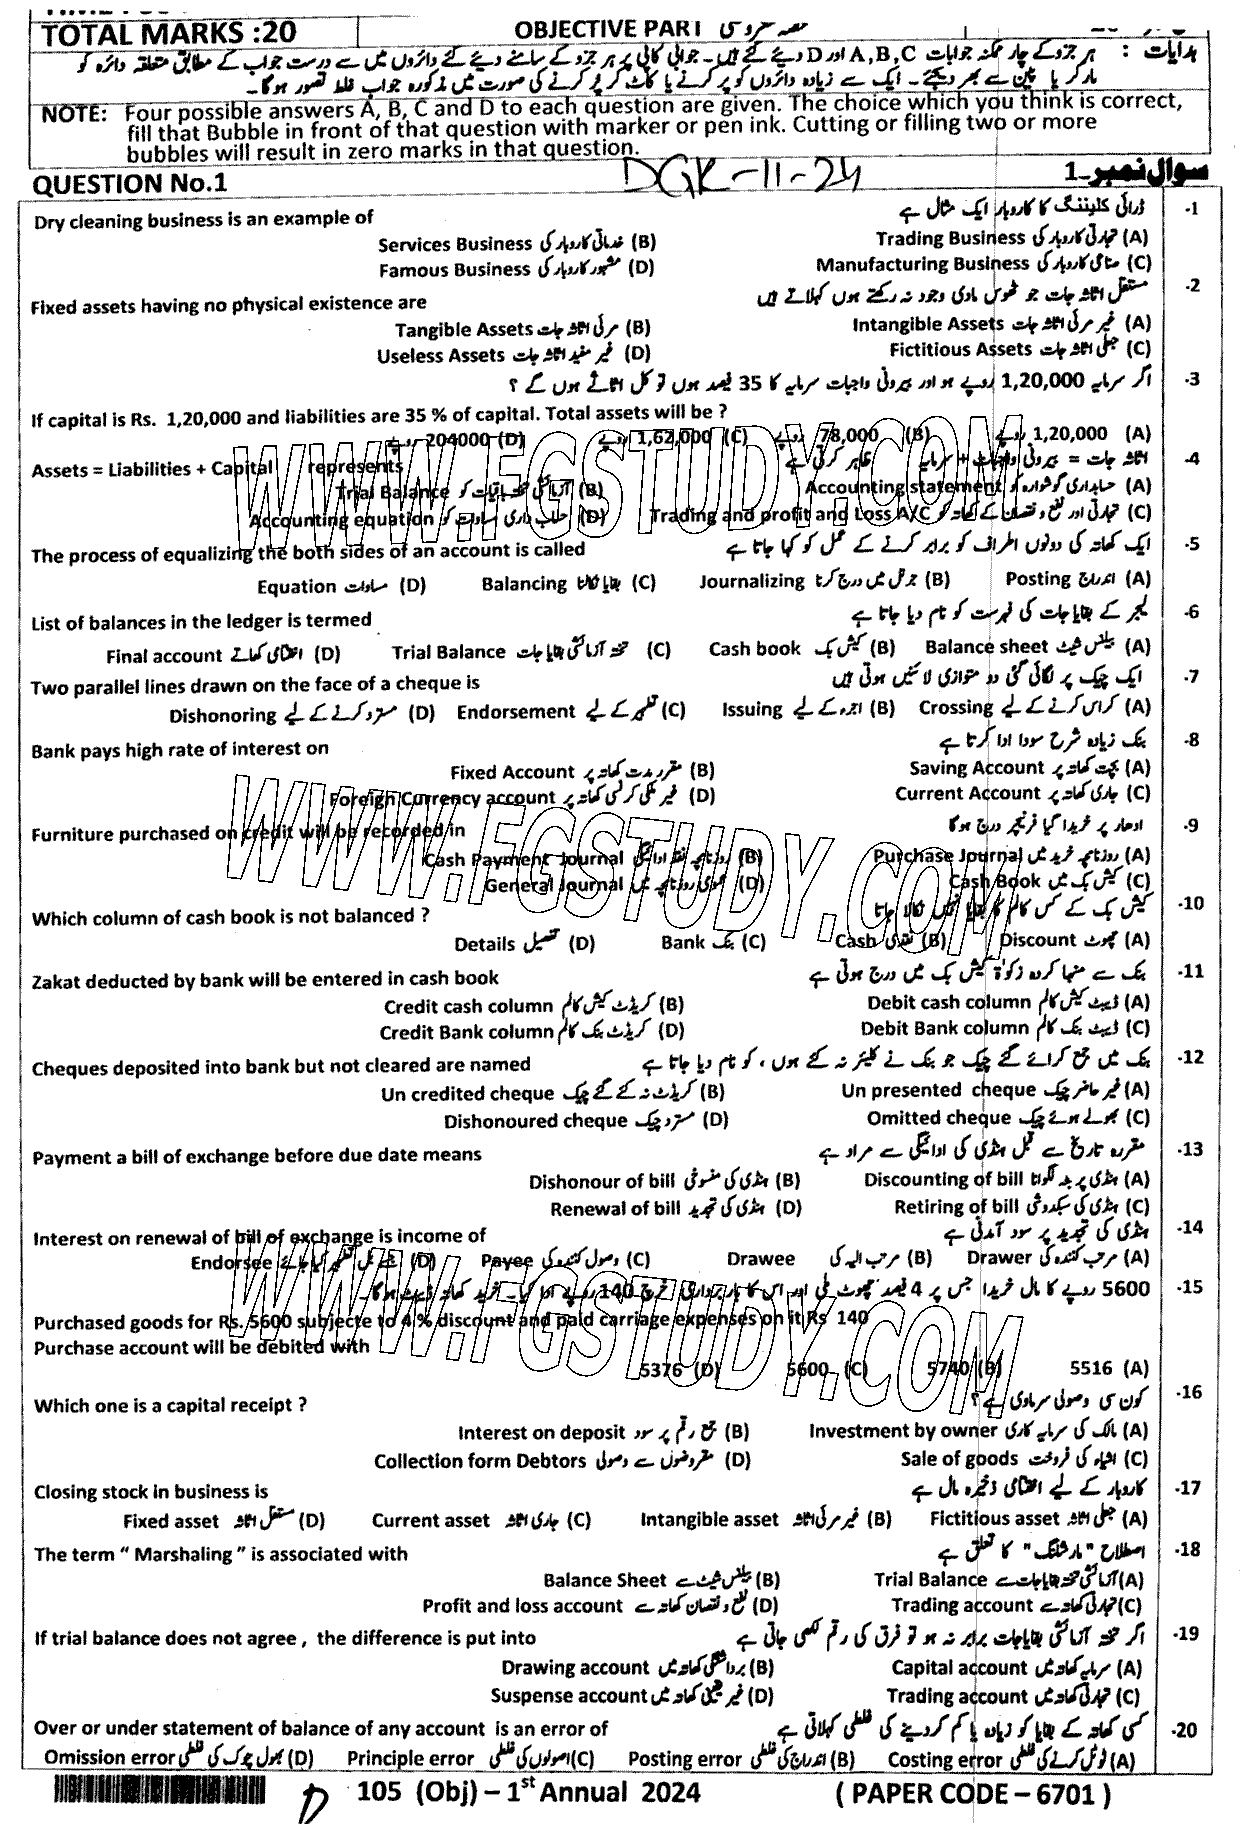 TOTAL MARKS :20 OBJECTIVE PART حصہ معروضی
ہدایات : ہر جزو کے چار ممکنہ جوابات A, B, C اور D دیے گئے ہیں۔ جوابی کاپی پر ہر جزو کے سامنے دیے گئے دائروں میں سے درست جواب کے مطابق متعلقہ دائرہ کو
مارکر یا پین سے بھر دیجئے۔ ایک سے زیادہ دائروں کو پر کرنے یا کاٹ کر پُر کرنے کی صورت میں مذکورہ جواب غلط تصور ہوگا۔
NOTE: Four possible answers A, B, C and D to each question are given. The choice which you think is correct,
fill that Bubble in front of that question with marker or pen ink. Cutting or filling two or more
bubbles will result in zero marks in that question.
QUESTION No.1 DGK-11-24 سوال نمبر 1-
-1 ڈرائی کلیننگ کا کاروبار ایک مثال ہے
Dry cleaning business is an example of
Trading Business تجارتی کاروبار کی (A) Services Business خدماتی کاروبار کی (B)
Manufacturing Business صنعتی کاروبار کی (C) Famous Business مشہور کاروبار کی (D)
-2 مستقل اثاثہ جات جو ٹھوس مادی وجود نہ رکھتے ہوں کہلاتے ہیں
Fixed assets having no physical existence are
Intangible Assets غیر مرئی اثاثہ جات (A) Tangible Assets مرئی اثاثہ جات (B)
Fictitious Assets جعلی اثاثہ جات (C) Useless Assets غیر مفید اثاثہ جات (D)
-3 اگر سرمایہ 1,20,000 روپے ہو اور بیرونی واجبات سرمایہ کا 35 فیصد ہوں تو کل اثاثے ہوں گے ؟
If capital is Rs. 1,20,000 and liabilities are 35 % of capital. Total assets will be ?
1,20,000 روپے (A) 78,000 روپے (B) 1,62,000 روپے (C) 204000 روپے (D)
-4 اثاثہ جات = بیرونی واجبات + سرمایہ ظاہر کرتی ہے
Assets = Liabilities + Capital represents
Accounting statement حسابداری گوشوارہ کو (A) Trial Balance آزمائشی تختہ باقیات کو (B)
Trading and profit and Loss A/C تجارتی اور نفع و نقصان کے کھاتہ کو (C) Accounting equation حساب داری مساوات کو (D)
-5 ایک کھاتہ کی دونوں اطراف کو برابر کرنے کے عمل کو کہا جاتا ہے
The process of equalizing the both sides of an account is called
Posting اندراج (A) Journalizing جرنل میں درج کرنا (B) Balancing بقایا نکالنا (C) Equation مساوات (D)
-6 لیجر کے بقایا جات کی فہرست کو نام دیا جاتا ہے
List of balances in the ledger is termed
Balance sheet بیلنس شیٹ (A) Cash book کیش بک (B) Trial Balance تختہ آزمائشی بقایا جات (C) Final account اختتامی کھاتے (D)
-7 ایک چیک پر لگائی گئی دو متوازی لائنیں ہوتی ہیں
Two parallel lines drawn on the face of a cheque is
Crossing کراس کرنے کے لیے (A) Issuing اجراء کے لیے (B) Endorsement تظہیر کے لیے (C) Dishonoring مسترد کرنے کے لیے (D)
-8 بنک زیادہ شرح سود ادا کرتا ہے
Bank pays high rate of interest on
Saving Account بچت کھاتہ پر (A) Fixed Account مقررہ مدت کھاتہ پر (B)
Current Account جاری کھاتہ پر (C) Foreign Currency account غیر ملکی کرنسی کھاتہ پر (D)
-9 ادھار پر خریدا گیا فرنیچر درج ہوگا
Furniture purchased on credit will be recorded in
Purchase Journal روزنامچہ خرید میں (A) Cash Payment Journal روزنامچہ نقد ادائیگی (B)
Cash Book کیش بک میں (C) General Journal عمومی روزنامچہ میں (D)
-10 کیش بک کے کس کالم کا بقایا نہیں نکالا جاتا
Which column of cash book is not balanced ?
Discount چھوٹ (A) Cash نقدی (B) Bank بنک (C) Details تفصیل (D)
-11 بنک سے منہا کردہ زکوٰۃ کیش بک میں درج ہوتی ہے
Zakat deducted by bank will be entered in cash book
Debit cash column ڈیبٹ کیش کالم (A) Credit cash column کریڈٹ کیش کالم (B)
Debit Bank column ڈیبٹ بنک کالم (C) Credit Bank column کریڈٹ بنک کالم (D)
-12 بنک میں جمع کرائے گئے چیک جو بنک نے کلیئر نہ کئے ہوں، کو نام دیا جاتا ہے
Cheques deposited into bank but not cleared are named
Un presented cheque غیر حاضر چیک (A) Un credited cheque کریڈٹ نہ کئے گئے چیک (B)
Omitted cheque بھولے ہوئے چیک (C) Dishonoured cheque مسترد چیک (D)
-13 مقررہ تاریخ سے قبل ہنڈی کی ادائیگی سے مراد ہے
Payment a bill of exchange before due date means
Discounting of bill ہنڈی پر بٹہ لگوانا (A) Dishonour of bill ہنڈی کی منسوخی (B)
Retiring of bill ہنڈی کی سبکدوشی (C) Renewal of bill ہنڈی کی تجدید (D)
-14 ہنڈی کی تجدید پر سود آمدنی ہے
Interest on renewal of bill of exchange is income of
Drawer مرتب کنندہ کی (A) Drawee مرتب الیہ کی (B) Payee وصول کنندہ کی (C) Endorsee (D)
-15 5600 روپے کا مال خریدا جس پر 4 فیصد چھوٹ ملی اور اس کا بار برداری خرچ 140 روپے ادا کیا۔ خرید کھاتہ ڈیبٹ ہوگا۔
Purchased goods for Rs. 5600 subjecte to 4 % discount and paid carriage expenses on it Rs 140
Purchase account will be debited with
5516 (A) 5740 (B) 5600 (C) 5376 (D)
-16 کون سی وصولی سرمادی ہے ؟
Which one is a capital receipt ?
Investment by owner مالک کی سرمایہ کاری (A) Interest on deposit جمع رقم پر سود (B)
Sale of goods اشیاء کی فروخت (C) Collection form Debtors مقروضوں سے وصولی (D)
-17 کاروبار کے لیے اختتامی ذخیرہ مال ہے
Closing stock in business is
Fictitious asset جعلی اثاثہ (A) Intangible asset غیر مرئی اثاثہ (B) Current asset جاری اثاثہ (C) Fixed asset مستقل اثاثہ (D)
-18 اصطلاح "مارشلنگ" کا تعلق ہے
The term “ Marshaling ” is associated with
Trial Balance آزمائشی تختہ بقایا جات سے (A) Balance Sheet بیلنس شیٹ سے (B)
Trading account تجارتی کھاتہ سے (C) Profit and loss account نفع و نقصان کھاتہ سے (D)
-19 اگر تختہ آزمائشی بقایاجات برابر نہ ہو تو فرق کی رقم لکھی جاتی ہے
If trial balance does not agree , the difference is put into
Capital account سرمایہ کھاتہ میں (A) Drawing account برداشتگی کھاتہ میں (B)
Trading account تجارتی کھاتہ میں (C) Suspense account غیر یقینی کھاتہ میں (D)
-20 کسی کھاتہ کے بقایا کو زیادہ یا کم کر دینے کی غلطی کہلاتی ہے
Over or under statement of balance of any account is an error of
Costing error ٹوٹل کرنے کی غلطی (A) Posting error اندراج کی غلطی (B) Principle error اصولوں کی غلطی (C) Omission error بھول چوک کی غلطی (D)
D 105 (Obj) – 1st Annual 2024 ( PAPER CODE – 6701 )
WWW.FGSTUDY.COM
WWW.FGSTUDY.COM
WWW.FGSTUDY.COM